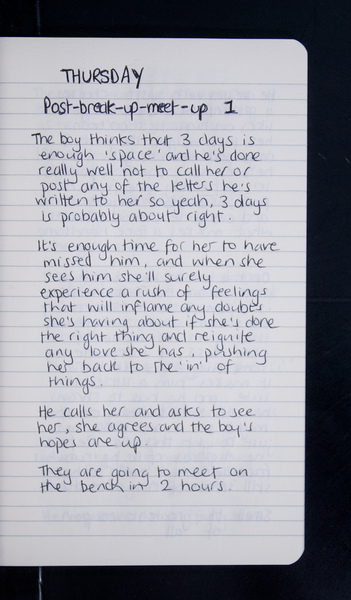 THURSDAY
Post-break-up-meet-up 1
The boy thinks that 3 days is
enough 'space' and he's done
really well not to call her or
post any of the letters he's
written to her so yeah, 3 days
is probably about right.
It's enough time for her to have
missed him, and when she
sees him she'll surely
experience a rush of feelings
that will inflame any doubts
she's having about if she's done
the right thing and reignite
any love she has, pushing
her back to the 'in' of
things.
He calls her and asks to see
her, she agrees and the boy's
hopes are up.
They are going to meet on
the bench in 2 hours.